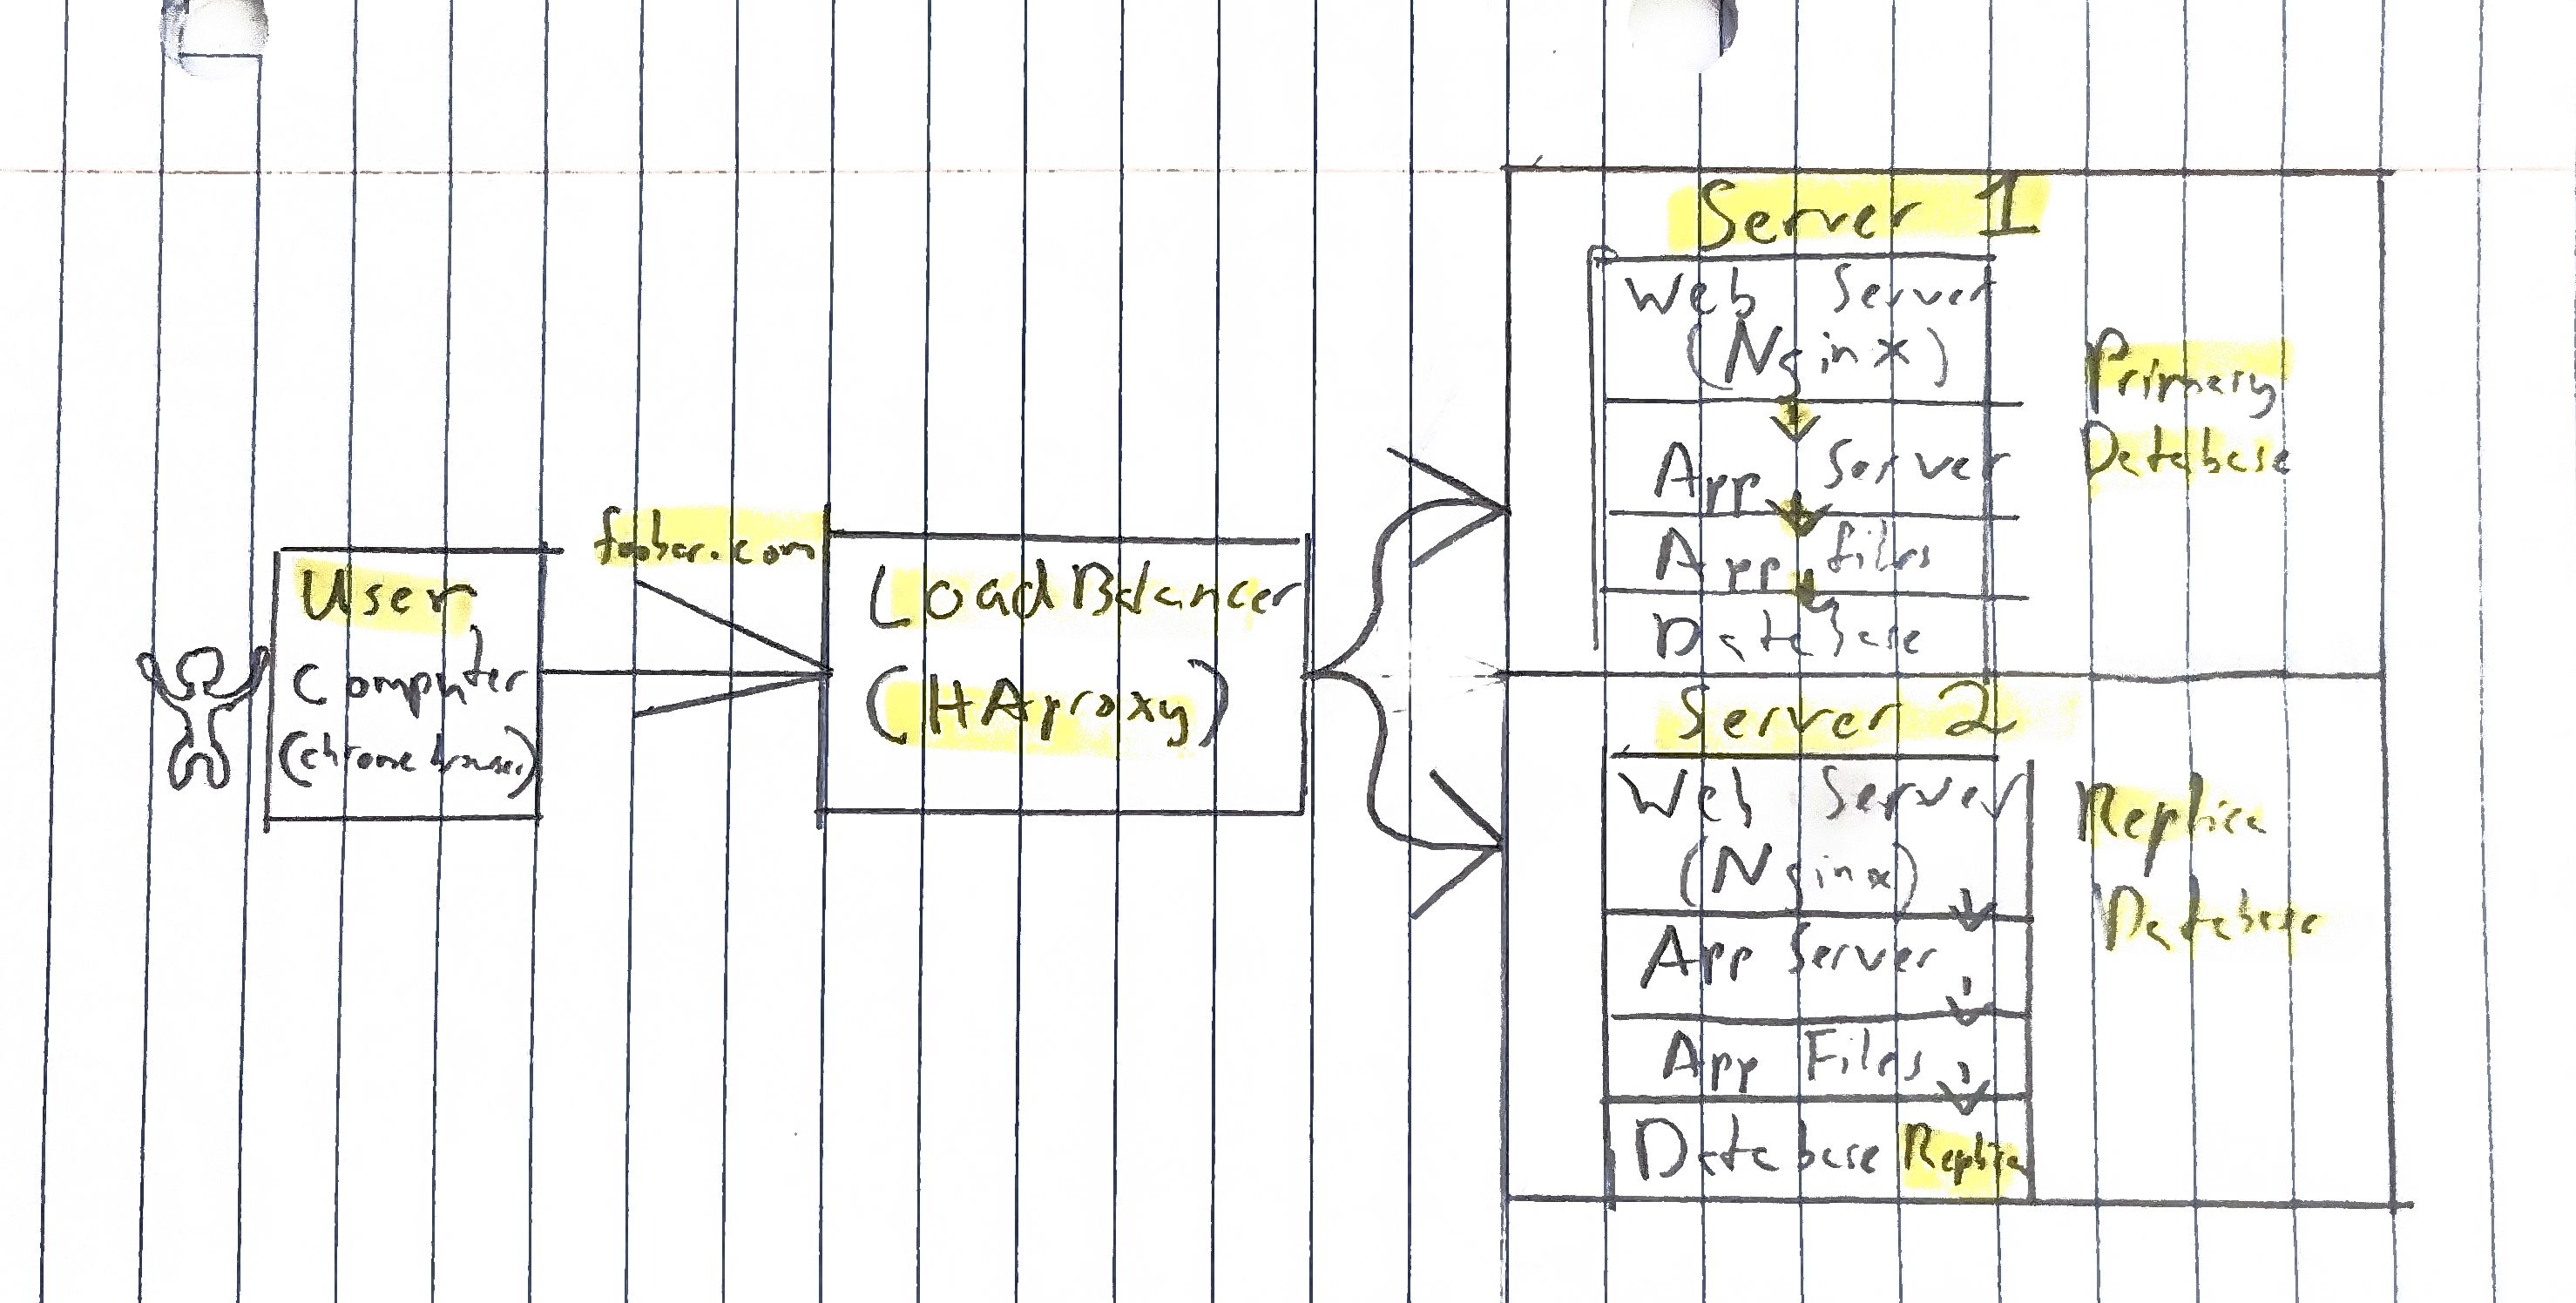 User
Computer
(chrome browser)
foobar.com
Load Balancer
(HAproxy)
Server 1
Web Server
(Nginx)
App Server
App files
Database
Primary
Database
Server 2
Web Server
(Nginx)
App Server
App Files
Database Replica
Replica
Database